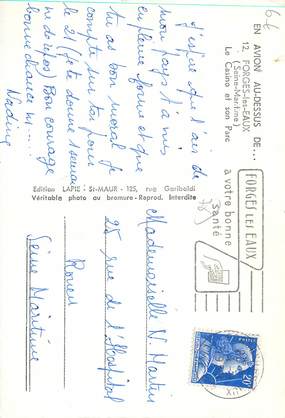 EN AVION AU-DESSUS DE...
12. FORGES-les-EAUX
(Seine-Maritime)
Le Casino et son Parc
J'espère que l'air de
mon pays t'a mis
en pleine forme et que
tu as bon moral. Je
compte sur toi pour
le 21 (je te donne 1 semaine
de repos) Bon courage
bonne chance
Nadine
Edition LAPIE - St-MAUR - 125, rue Garibaldi
Véritable photo au bromure - Reprod. Interdite
FORGES LES EAUX
à votre bonne
santé
20F
Mademoiselle N. Martin
25 rue de l'Hôpital
Rouen
Seine Maritime